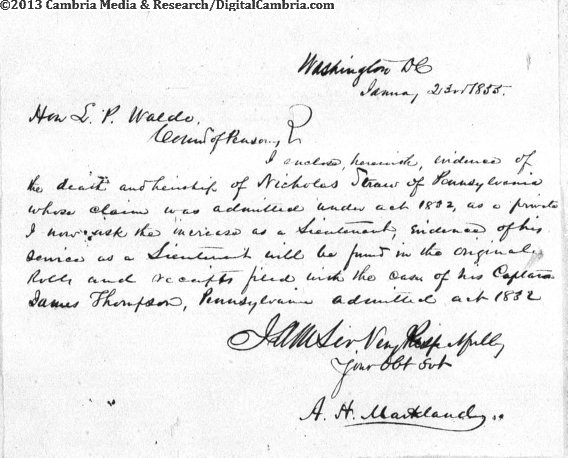 ©2013 Cambria Media & Research/DigitalCambria.com
Washington DC
23rd 1855.
Hon L. P. Waldo.
Com of Pensions
I enclose, herewith, evidence of
the death and heirship of Nicholas Straw of Pennsylvania
whose claim was admitted under act 1832, as a private
I now ask the increase as a Lieutenant, evidence of his
service as a Lieutenant will be fund in the original
Rolls and receipts filed with the case of his Captain
James Thompson, Pennsylvania admitted act 1832
I AM Sir Very Respectfully
Your Obt Svt
A. H. Markland